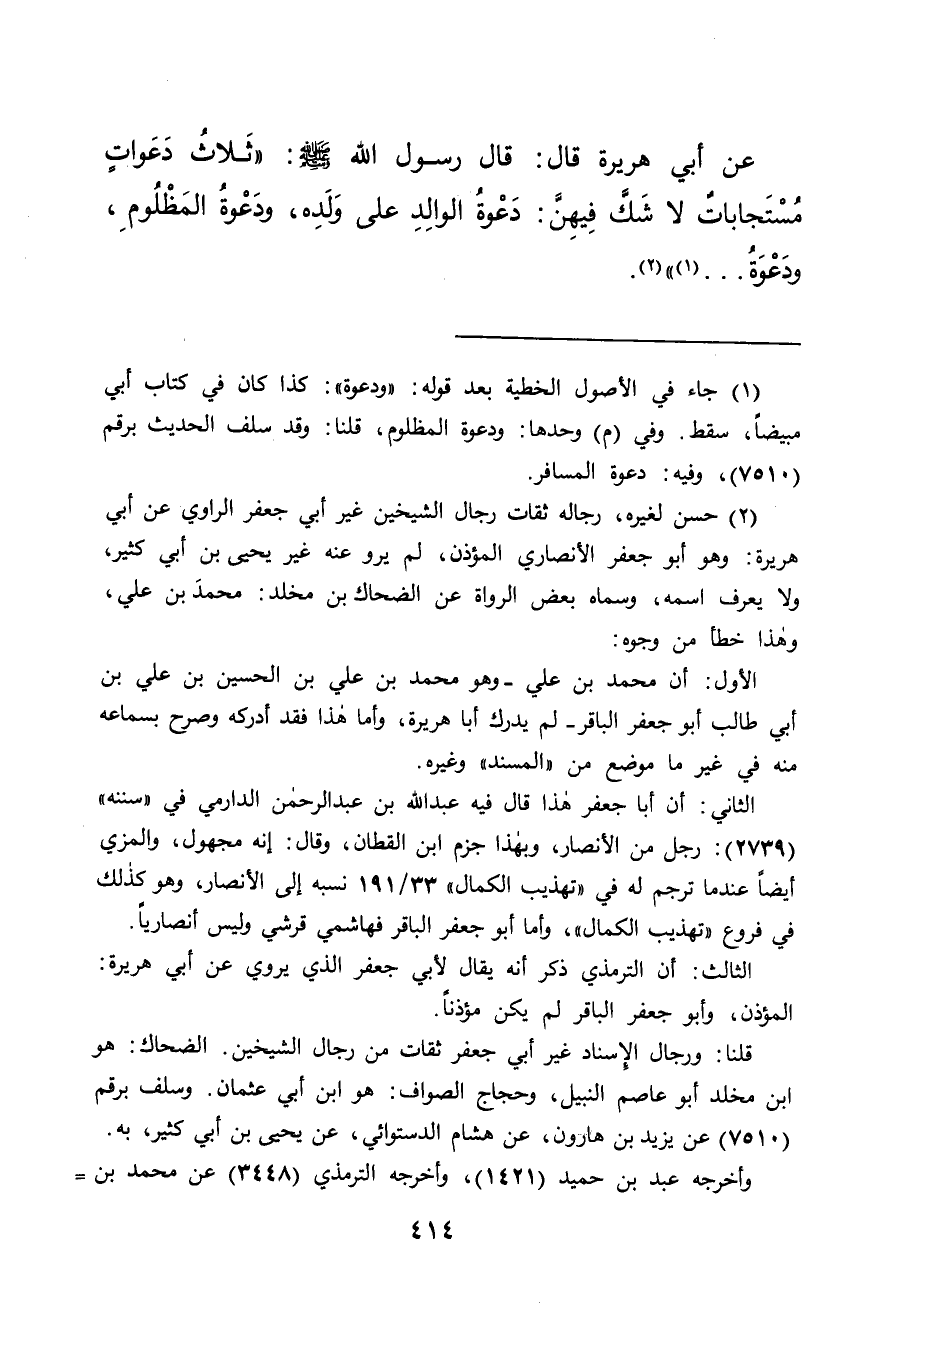 عن أبي هريرة قال: قال رسول الله ﷺ: «ثَلاثُ دَعَواتٍ
مُسْتَجاباتٌ لا شَكَّ فِيهِنَّ: دَعْوةُ الوالِدِ على وَلَدِه، ودَعْوةُ المَظْلُومِ،
ودَعْوَةُ. . . (١)»(٢).
(١) جاء في الأصول الخطية بعد قوله: «ودعوة»: كذا كان في كتاب أبي
مبيضاً، سقط. وفي (م) وحدها: ودعوة المظلوم، قلنا: وقد سلف الحديث برقم
(٧٥١٠)، وفيه: دعوة المسافر.
(٢) حسن لغيره، رجاله ثقات رجال الشيخين غير أبي جعفر الراوي عن أبي
هريرة: وهو أبو جعفر الأنصاري المؤذن، لم يرو عنه غير يحيى بن أبي كثير،
ولا يعرف اسمه، وسماه بعض الرواة عن الضحاك بن مخلد: محمدَ بن علي،
وهٰذا خطأ من وجوه:
الأول: أن محمد بن علي ـ وهو محمد بن علي بن الحسين بن علي بن
أبي طالب أبو جعفر الباقر ـ لم يدرك أبا هريرة، وأما هٰذا فقد أدركه وصرح بسماعه
منه في غير ما موضع من «المسند» وغيره.
الثاني: أن أبا جعفر هٰذا قال فيه عبدالله بن عبدالرحمٰن الدارمي في «سننه»
(٢٧٣٩): رجل من الأنصار، وبهٰذا جزم ابن القطان، وقال: إنه مجهول، والمزي
أيضاً عندما ترجم له في «تهذيب الكمال» ١٩١/٣٣ نسبه إلى الأنصار، وهو كذٰلك
في فروع «تهذيب الكمال»، وأما أبو جعفر الباقر فهاشمي قرشي وليس أنصارياً.
الثالث: أن الترمذي ذكر أنه يقال لأبي جعفر الذي يروي عن أبي هريرة:
المؤذن، وأبو جعفر الباقر لم يكن مؤذناً.
قلنا: ورجال الإِسناد غير أبي جعفر ثقات من رجال الشيخين. الضحاك: هو
ابن مخلد أبو عاصم النبيل، وحجاج الصواف: هو ابن أبي عثمان. وسلف برقم
(٧٥١٠) عن يزيد بن هارون، عن هشام الدستوائي، عن يحيى بن أبي كثير، به.
وأخرجه عبد بن حميد (١٤٢١)، وأخرجه الترمذي (٣٤٤٨) عن محمد بن =
٤١٤